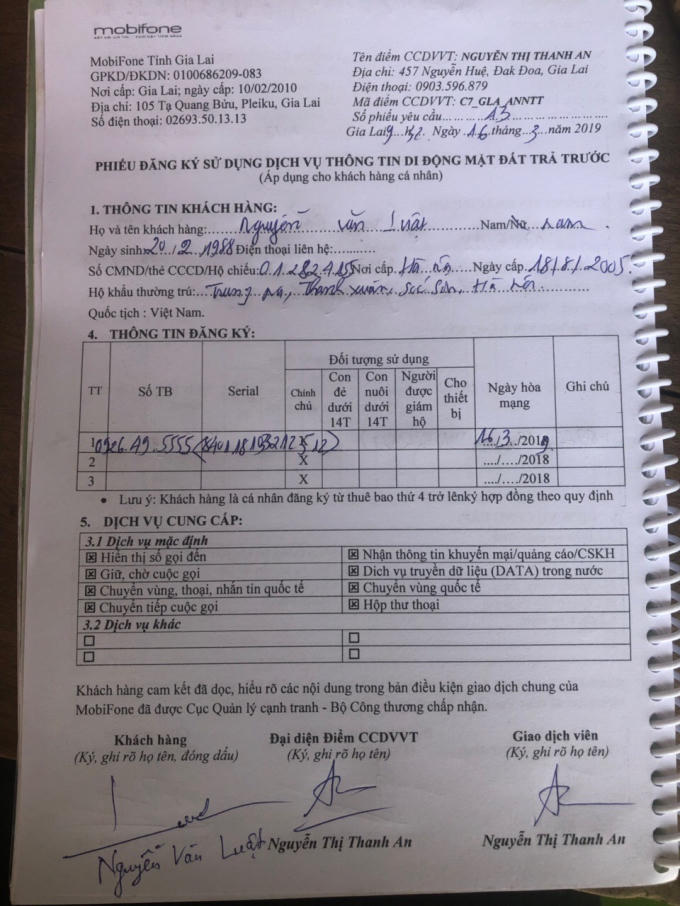 mobifone
MobiFone Tỉnh Gia Lai
GPKD/ĐKDN: 0100686209-083
Nơi cấp: Gia Lai; ngày cấp: 10/02/2010
Địa chỉ: 105 Tạ Quang Bửu, Pleiku, Gia Lai
Số điện thoại: 02693.50.13.13
Tên điểm CCDVVT: NGUYỄN THỊ THANH AN
Địa chỉ: 457 Nguyễn Huệ, Đak Đoa, Gia Lai
Điện thoại: 0903.596.879
Mã điểm CCDVVT: C7_GLA_ANNTT
Số phiếu yêu cầu... 13
Gia Lai, Ngày 16 tháng 3 năm 2019
PHIẾU ĐĂNG KÝ SỬ DỤNG DỊCH VỤ THÔNG TIN DI ĐỘNG MẶT ĐẤT TRẢ TRƯỚC
(Áp dụng cho khách hàng cá nhân)
1. THÔNG TIN KHÁCH HÀNG:
Họ và tên khách hàng: Nguyễn Văn Luật Nam/Nữ Nam
Ngày sinh 20/2/1988 Điện thoại liên hệ:
Số CMND/thẻ CCCD/Hộ chiếu: Nơi cấp. Hà Nội Ngày cấp. 18/8/2005
Hộ khẩu thường trú: Thanh Xuân, Sóc Sơn, Hà Nội
Quốc tịch : Việt Nam.
4. THÔNG TIN ĐĂNG KÝ:
TT Số TB Serial Đối tượng sử dụng Ngày hòa mạng Ghi chú
Chính chủ Con đẻ dưới 14T Con nuôi dưới 14T Người được giám hộ Cho thiết bị
1 0926.49.5555 X 16/3/2019
2 X ..../..../2018
3 X ..../..../2018
• Lưu ý: Khách hàng là cá nhân đăng ký từ thuê bao thứ 4 trở lênký hợp đồng theo quy định
5. DỊCH VỤ CUNG CẤP:
3.1 Dịch vụ mặc định
☒ Hiển thị số gọi đến ☒ Nhận thông tin khuyến mại/quảng cáo/CSKH
☒ Giữ, chờ cuộc gọi ☒ Dịch vụ truyền dữ liệu (DATA) trong nước
☒ Chuyển vùng, thoại, nhắn tin quốc tế ☒ Chuyển vùng quốc tế
☒ Chuyển tiếp cuộc gọi ☒ Hộp thư thoại
3.2 Dịch vụ khác
Khách hàng cam kết đã đọc, hiểu rõ các nội dung trong bản điều kiện giao dịch chung của
MobiFone đã được Cục Quản lý cạnh tranh - Bộ Công thương chấp nhận.
Khách hàng Đại diện Điểm CCDVVT Giao dịch viên
(Ký, ghi rõ họ tên, đóng dấu) (Ký, ghi rõ họ tên) (Ký, ghi rõ họ tên)
Nguyễn Văn Luật Nguyễn Thị Thanh An Nguyễn Thị Thanh An